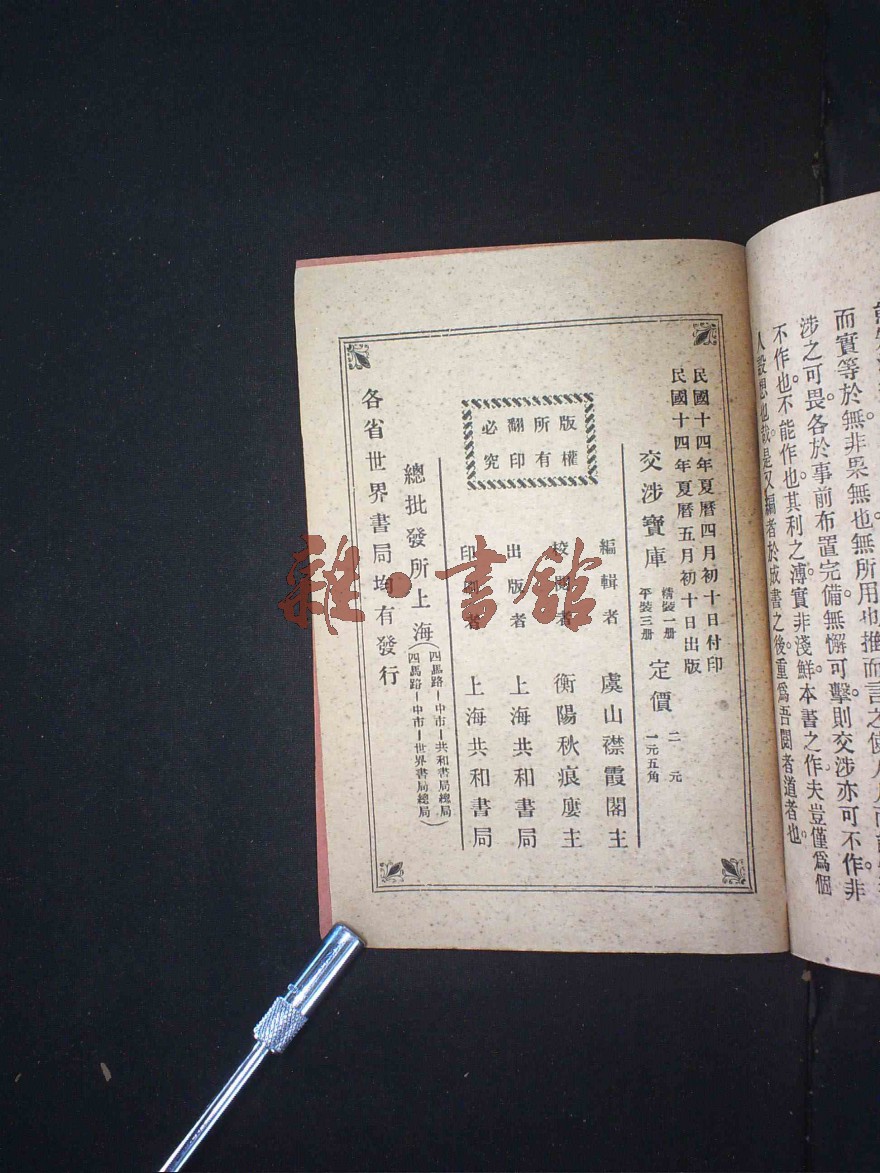 而實等於無非果無也無所用也推而言之使人人
涉之可畏各於事前布置完備無懈可擊則交涉亦可不作。非
不作也。不能作也。其利之溥實非淺鮮。本書之作夫豈僅爲個
人設想也哉。是又編者於成書之後重爲吾閱者道者也。
民國十四年夏曆四月初十日付印
民國十四年夏曆五月初十日出版
交涉寶庫
精裝一册
平裝三册
定價
二元
一元五角
版權
所有
翻印
必究
編輯者 虞山襟霞閣主
校閱者 衡陽秋痕廔主
出版者 上海共和書局
印刷者 上海共和書局
總批發所上海
(四馬路─中市─共和書局總局
四馬路─中市─世界書局總局)
各省世界書局均有發行
雜·書館